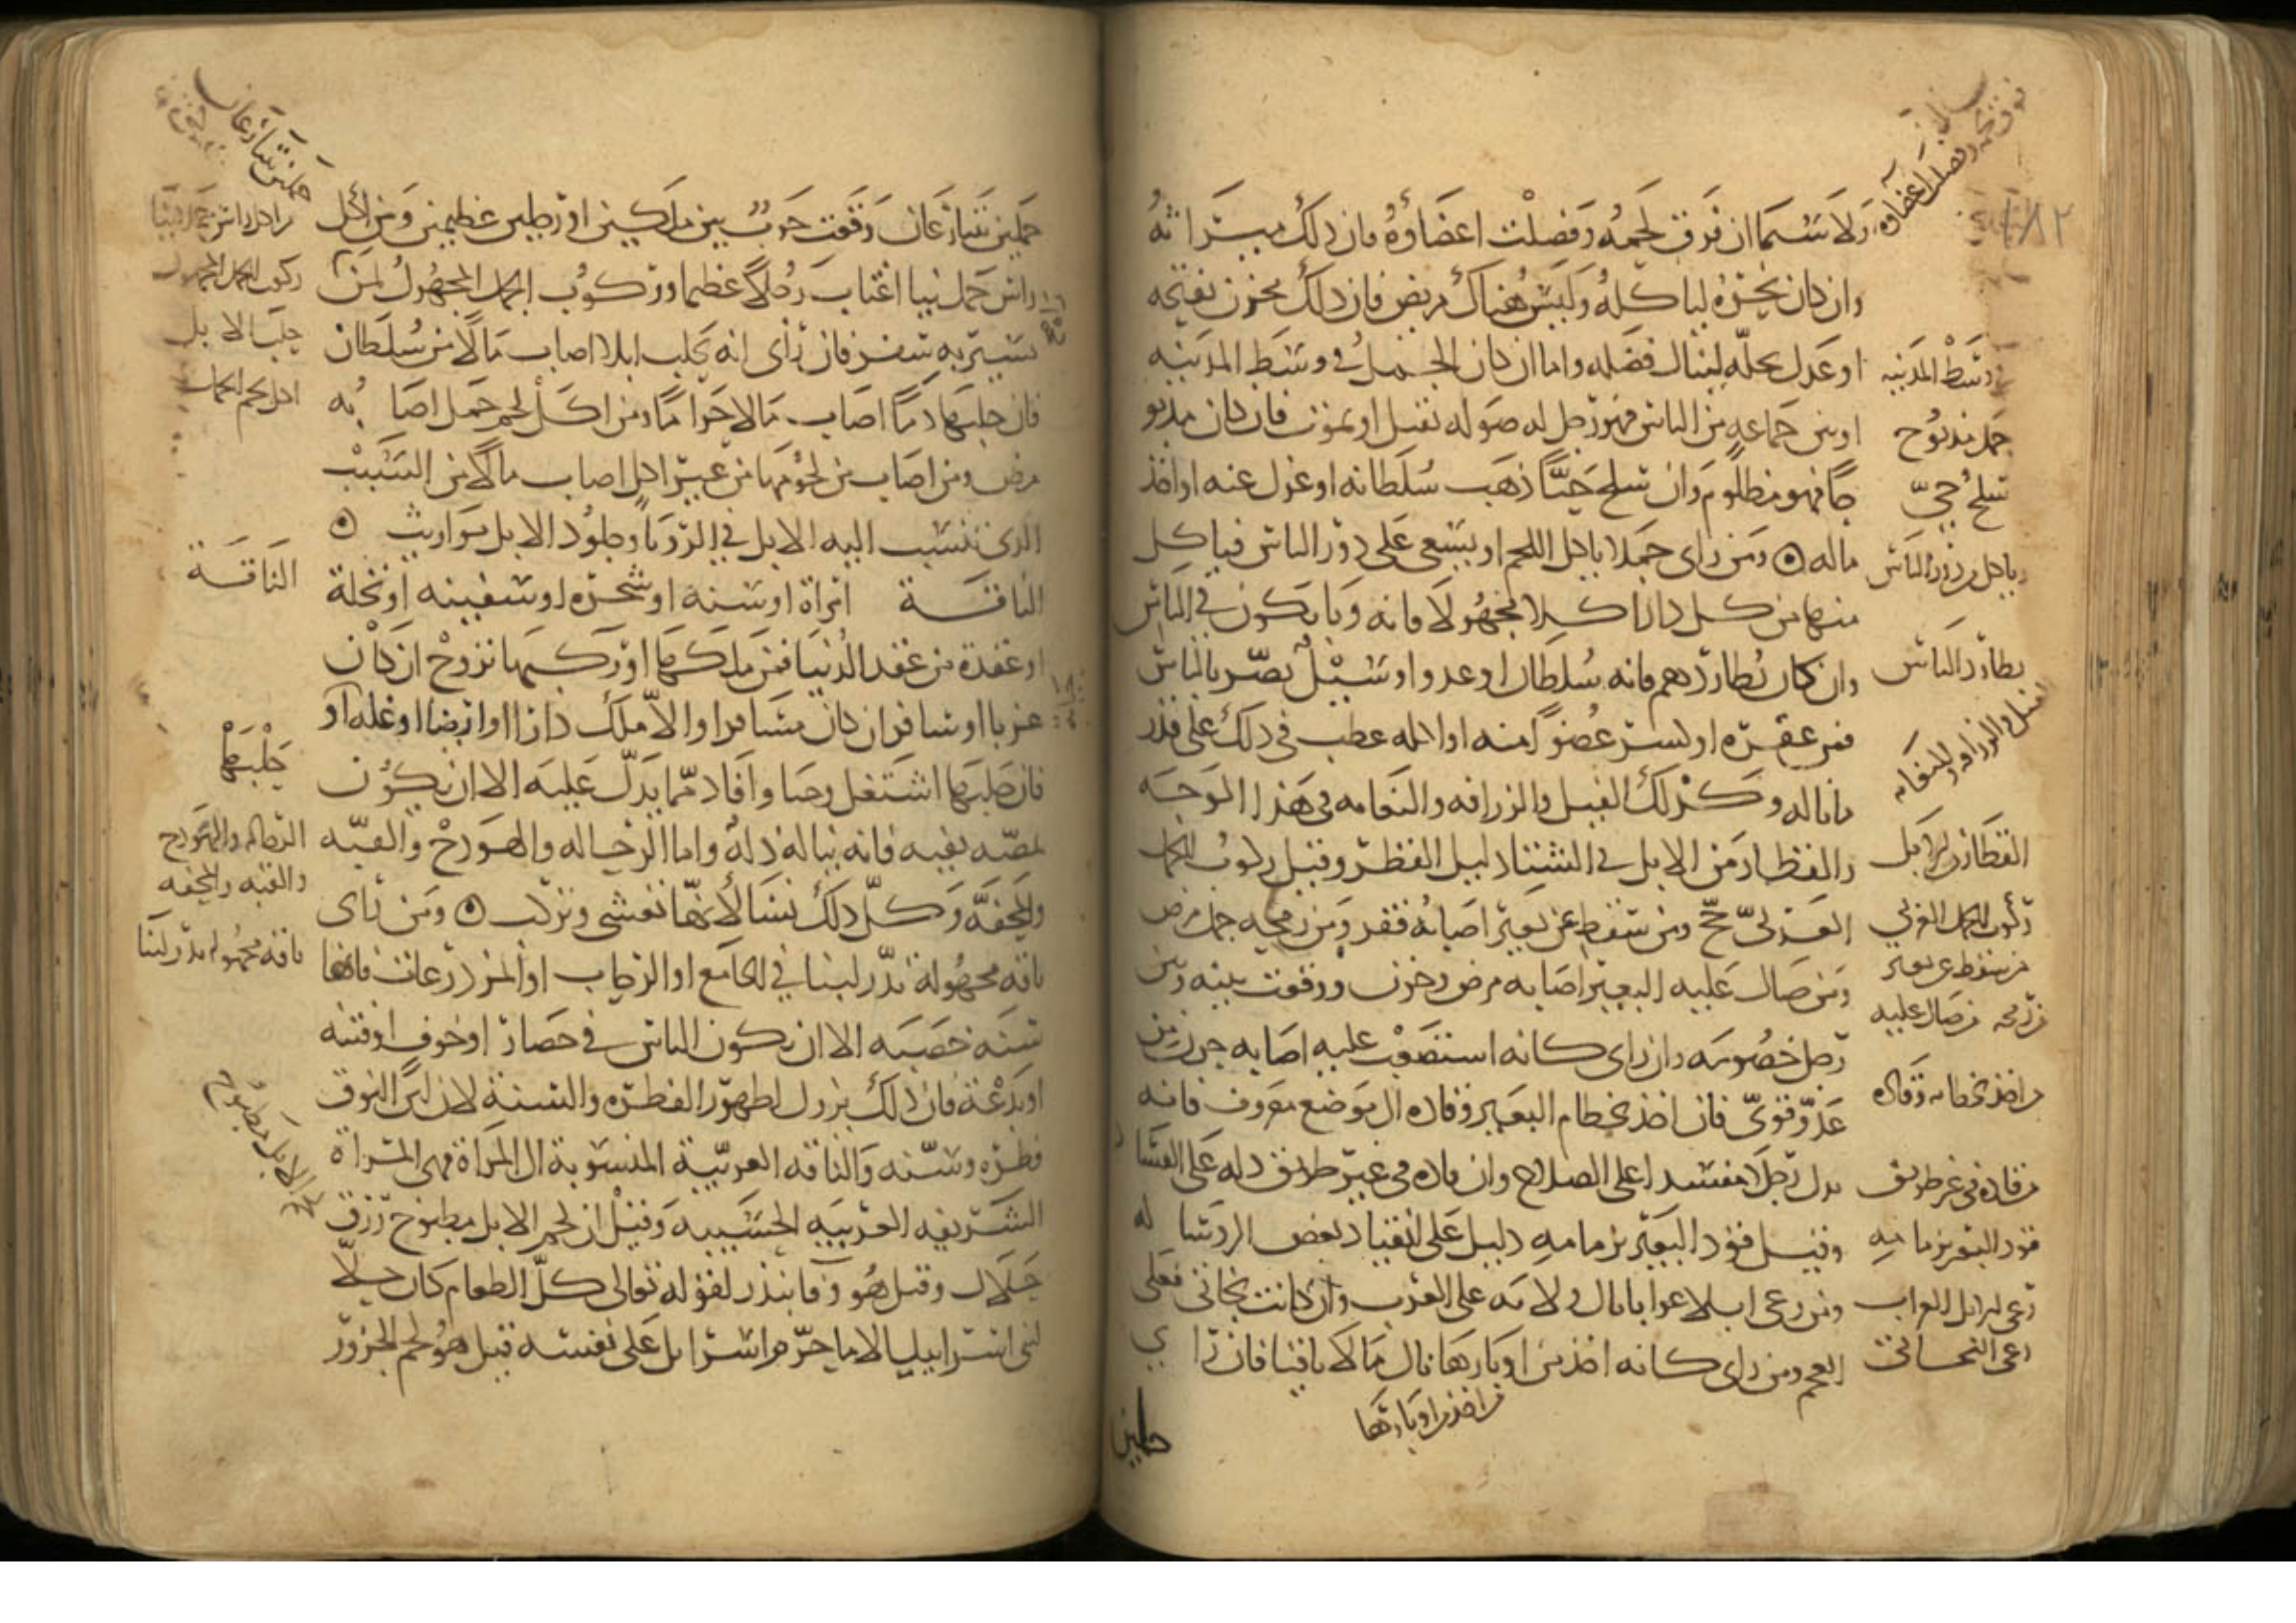 ولا سيما ان فرق لحمه وفصلت اعضاؤه فان ذلك ميراثه
وان كان نحره ليأكله وليس هناك مريض فان ذلك مخزن يفتحه
او عدل يحله لينال فضله واما ان كان الجمل في وسط المدينه
او بين جماعه من الناس فهو رجل له صوله يقتل او يموت فان كان مذبو
حا فهو مظلوم وان سلخ حيّا ذهب سلطانه او عزل عنه او اخذ
ماله ۞ ومن راى جملا ياكل اللحم او يسعى على دور الناس فياكل
منها من كل دار اكلا مجهولا فانه وبا يكون في الناس
وان كان يطاردهم فانه سلطان او عدو او سيل يضر بالناس
فمن عقره او كسر عضوا منه او اكله عطب في ذلك على قدر
ما ناله وكذلك الفيل والزرافه والنعامه في هذا الوجه
والقطار من الابل في الشتا دليل القطر وقيل ركوب الجمل
العربيّ حجّ ومن سقط عن بعير اصابه فقر ومن رمحه جمل مرض
ومن صال عليه البعير اصابه مرض وحزن ووقعت بينه وبين
رجل خصومه وان راى كانه استصعب عليه اصابه حزن من
عدوّ قويّ فان اخذ بخطام البعير وقاده الى موضع معروف فانه
يدل رجلا مفسدا على الصلاح وان قاده في غير طريق دله على الفسا د
وقيل قود البعير بزمامه دليل على انقياد بعض الروسا له
ومن رعى ابلا عرابا نال ولايه على العرب وان كانت بخاتي فعلى
العجم ومن راى كانه اخذ من اوبارها نال مالا باقيا فان را ي
جملين
وسط المدينه
جمل مذبوح
سلخ حيّ
ياكل من دور الناس
يطارد الناس
الفيل والزرافه والنعامه
القطار من الابل
ركوب الجمل العربي
من سقط عن بعير
من رمحه من صال عليه
من اخذ بخطامه وقاده
من قاده في غير طريق
قود البعير بزمامه
رعى الابل العراب
رعى البخاتي
من اخذ من اوبارها
جملين يتنازعان وقعت حرب بين ملكين او رجلين عظيمين ومن اكل
راس جمل نيا اغتاب رجلا عظيما وركوب الجمل المجهول لمن
يسير به سفر فان راى انه يحلب ابلا اصاب مالا من سلطان
فان حلبها دما اصاب مالا حراما ومن اكل لحم جمل اصا به
مرض ومن اصاب من لحومها من غير اكل اصاب مالا من السبب
الذي تنسب اليه الابل في الرويا وجلود الابل مواريث ۞
الناقة امراة او سنه او شجره او سفينه او نخلة
او عقدة من عقد الدنيا فمن ملكها او ركبها تزوج ان كان
عزبا او سافر ان كان مسافرا والا ملك دارا او ارضا او غله او
فان حلبها اشتغل وجبا وافاد مما يدل عليه الا ان يكون
يمصّه بفيه فانه يناله ذله واما الرحاله والهودج والقبّه
والمحفّه وكلّ ذلك نسا لانها تغشى وتركب ۞ ومن راى
ناقه مجهولة تدر لبنا في الجامع او الرحاب او المزدرعات فانها
سنه خصبه الا ان يكون الناس في حصار او خوف او فتنه
او بدعة فان ذلك يزول لظهور الفطره والسنة لان لبن النوق
فطره وسنّه والناقه العربيّة المنسوبة الى المراة فهي المراة
الشريفه العربيه الحسيبه وقيل ان لحم الابل مطبوخ رزق
حلال وقيل هو وفا بنذر لقوله تعالى كلّ الطعام كان حلا
لبني اسرائيل الا ما حرّم اسرائيل على نفسه قيل هو لحم الجزور
جملين يتنازعان
ركوب الجمل المجهول
حلب الابل
اكل لحم الجمل
الناقة
حلبها
الرحاله والهودج
والقبّه والمحفه
ناقه مجهوله تدر لبنا
لحم الابل مطبوخ